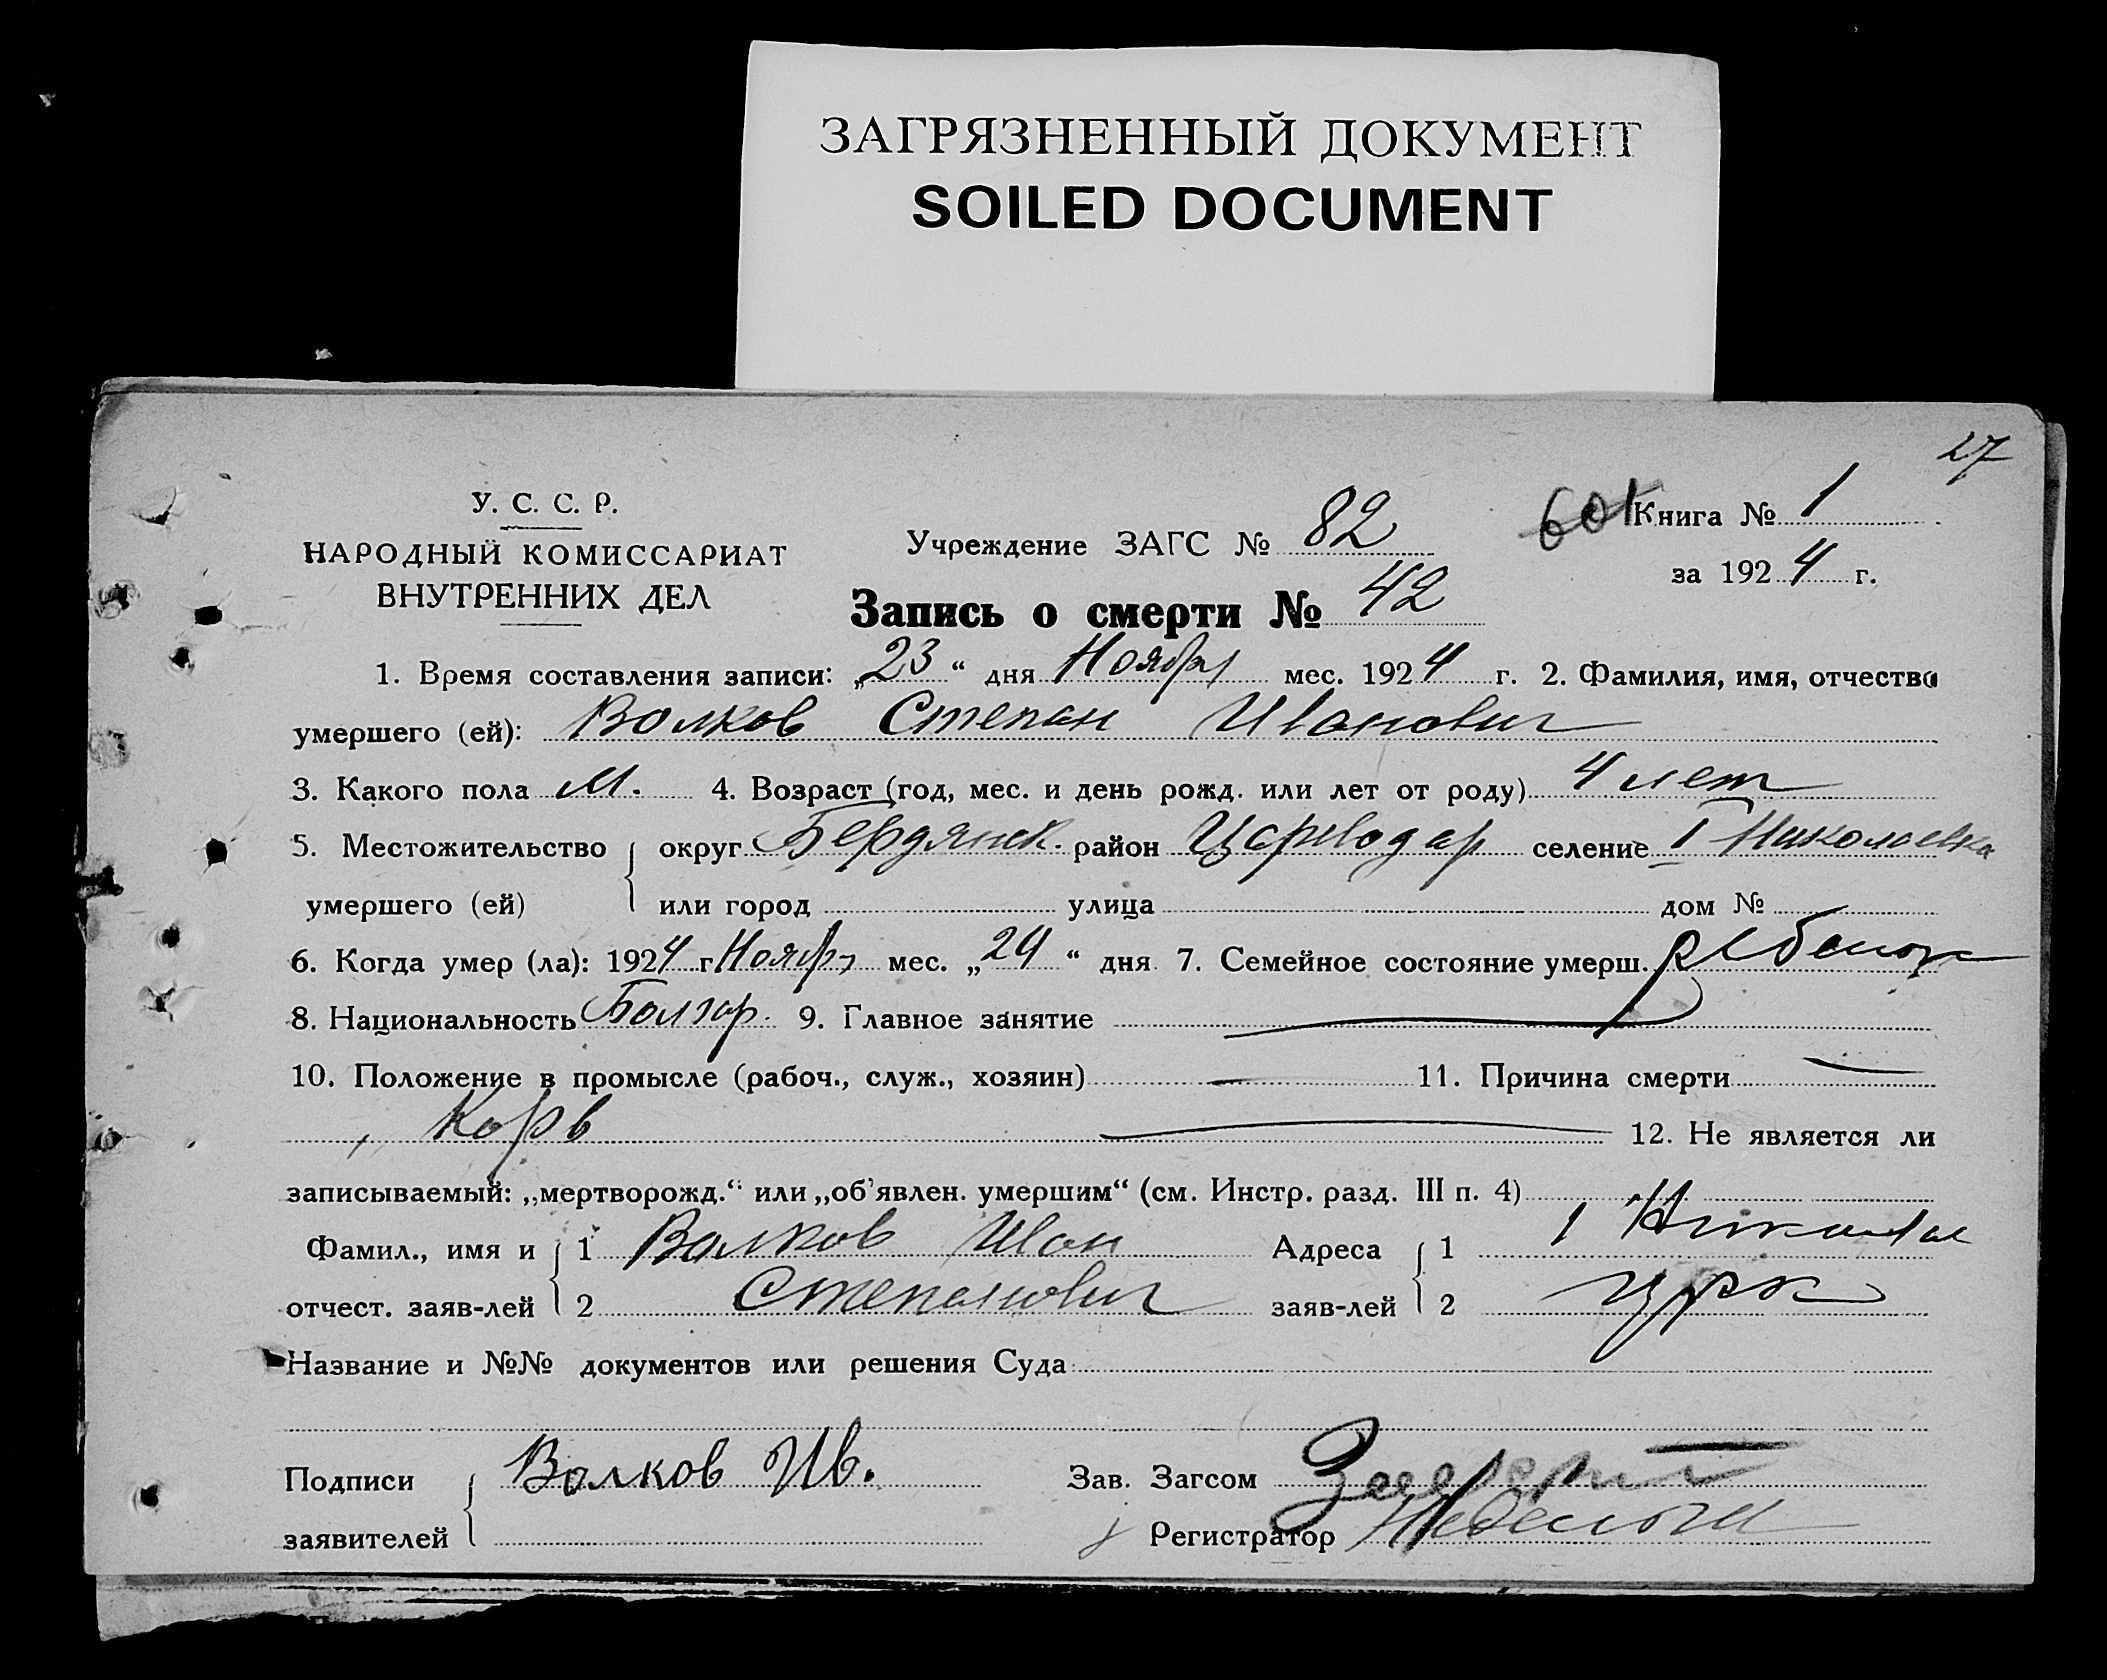 ЗАГРЯЗНЕННЫЙ ДОКУМЕНТ
SOILED DOCUMENT
27
У. С. С. Р.
НАРОДНЫЙ КОМИССАРИАТ
ВНУТРЕННИХ ДЕЛ
Учреждение ЗАГС № 82
601 Книга № 1
за 1924 г.
Запись о смерти № 42
1. Время составления записи: „23“ дня Ноября мес. 1924 г. 2. Фамилия, имя, отчество
умершего (ей): Волков Степан Иванович
3. Какого пола М. 4. Возраст (год, мес. и день рожд. или лет от роду) 4 лет
5. Местожительство округ Бердянск. район Цареводар селение I Николаевка
умершего (ей) или город улица дом №
6. Когда умер (ла): 1924 г Ноября мес. „24“ дня 7. Семейное состояние умерш. Ребенок
8. Национальность Болгар. 9. Главное занятие
10. Положение в промысле (рабоч., служ., хозяин) — 11. Причина смерти
Корь 12. Не является ли
записываемый: „мертворожд.“ или „об’явлен. умершим“ (см. Инстр. разд. III п. 4)
Фамил., имя и 1 Волков Иван Адреса 1 I
отчест. заяв-лей 2 Степанович заяв-лей 2
Название и №№ документов или решения Суда
Подписи Волков Ив. Зав. Загсом
заявителей Регистратор